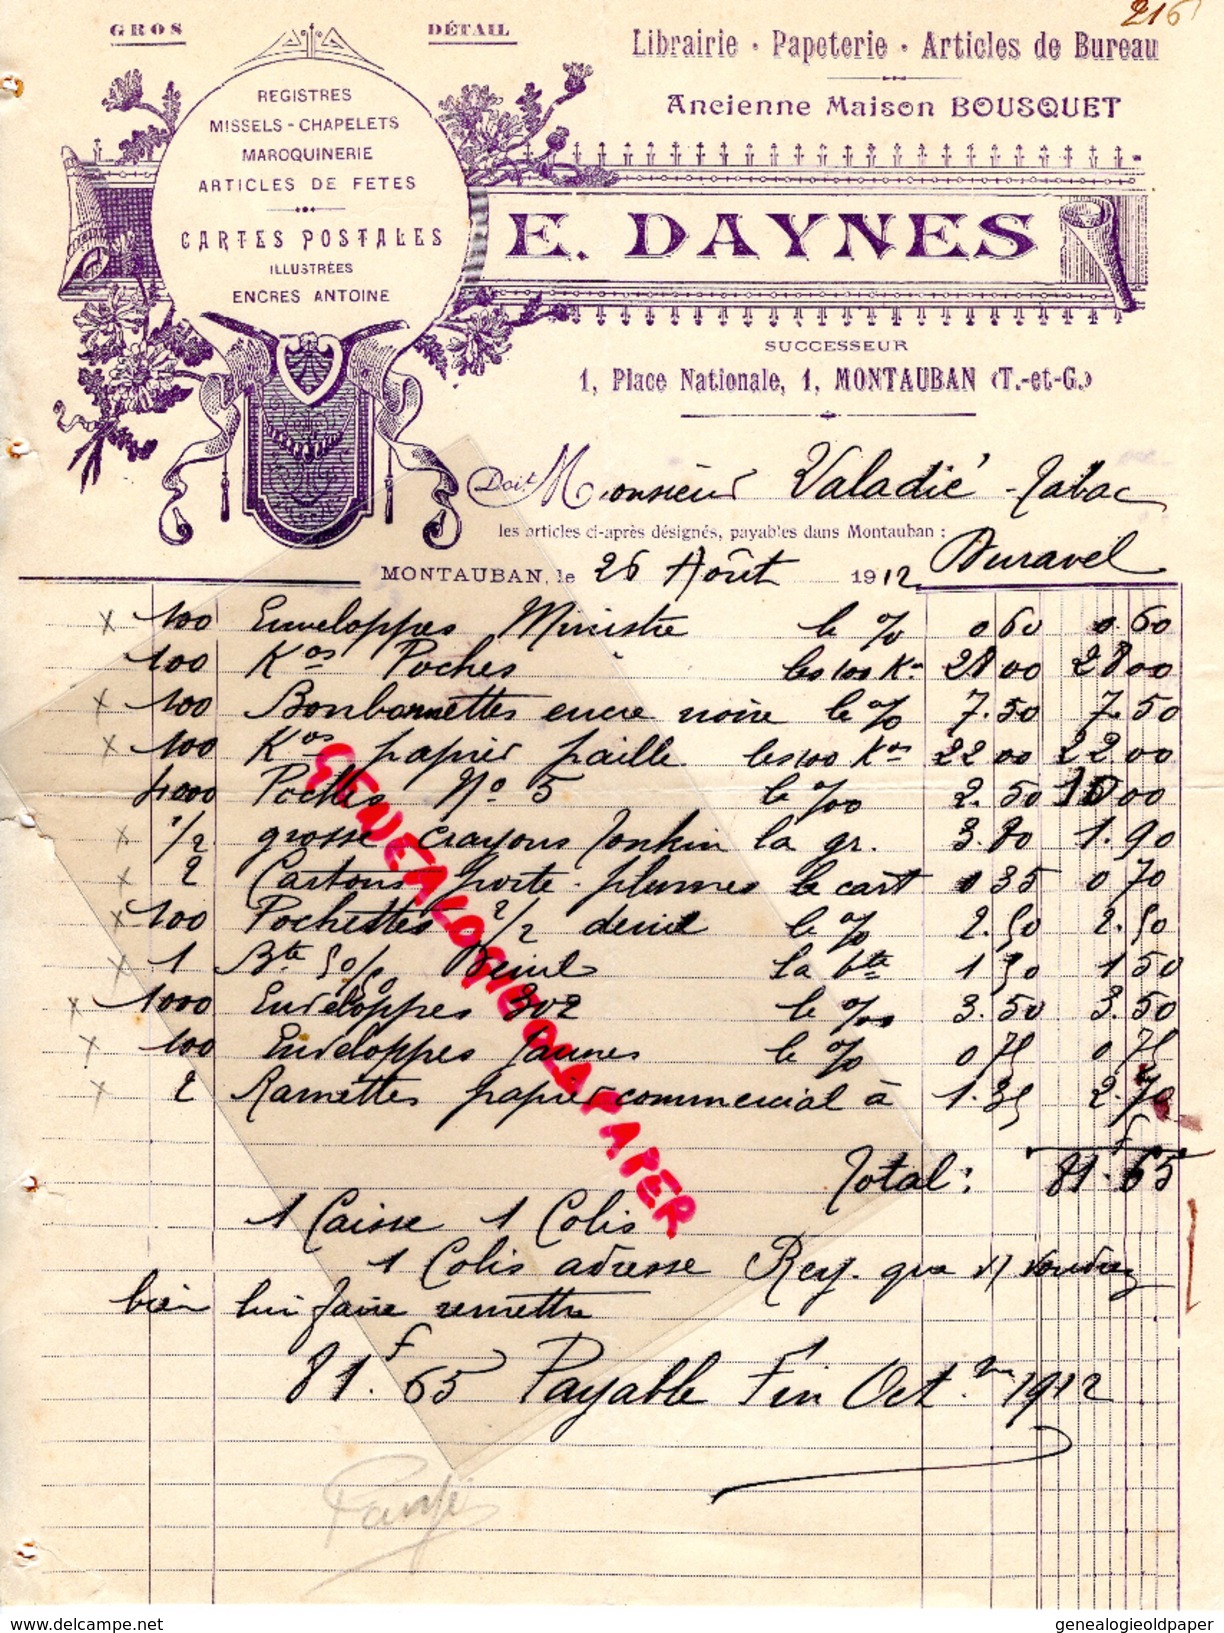 216
GROS DÉTAIL
Librairie · Papeterie · Articles de Bureau
Ancienne Maison BOUSQUET
REGISTRES
MISSELS - CHAPELETS
MAROQUINERIE
ARTICLES DE FETES
CARTES POSTALES
ILLUSTRÉES
ENCRES ANTOINE
E. DAYNES
SUCCESSEUR
1, Place Nationale, 1, MONTAUBAN (T.-et-G.)
Doit Monsieur Valadié - Tabac
les articles ci-après désignés, payables dans Montauban :
Duravel
MONTAUBAN, le 26 Août 1912
x 100 Enveloppes Ministre le % 0 60 0.60
100 Kos Poches les 100 Kos 28 00 28 00
x 100 Bonbonnettes encre noire le % 7.50 7.50
x 100 Kos papier paille les 100 Kos 22 00 22 00
4000 Poches No 5 le %o 2.50 10 00
x 1/2 grosse crayons Tonkin la gr. 3.80 1.90
x 2 Cartons porte-plumes le cart 0 35 0 70
x 100 Pochettes 2/2 deuil le % 2.50 2.50
x 1 Bte 50/50 Deuil la bte 1 50 1 50
x 1000 Enveloppes 302 le %o 3.50 3.50
x 100 Enveloppes Jaunes le % 0 75 0 75
x 2 Ramettes papier commercial à 1.35 2.70
Total : 81f.65
1 Caisse 1 Colis
1 Colis adresse Rey. que vs voudrez
bien lui faire remettre
81f.65 Payable Fin Oct. 1912
GENEALOGIEOLDPAPER
www.delcampe.net genealogieoldpaper